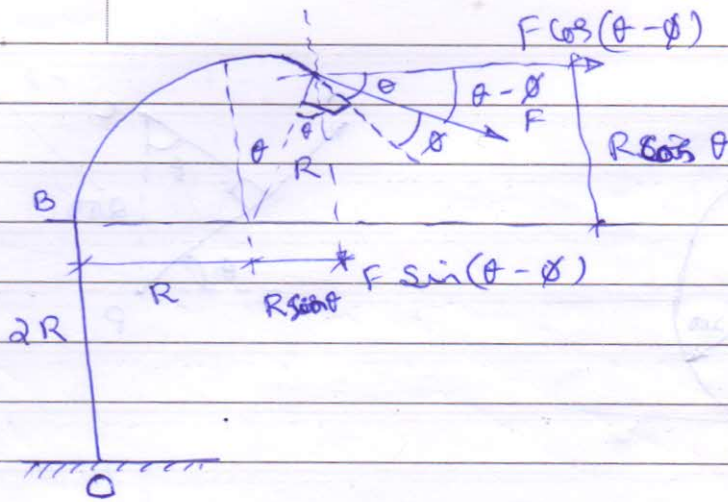 F cos(θ - ϕ)
θ
θ - ϕ
F
θ
θ
ϕ
R
R cos θ
B
R
R sin θ
F sin(θ - ϕ)
2R
O